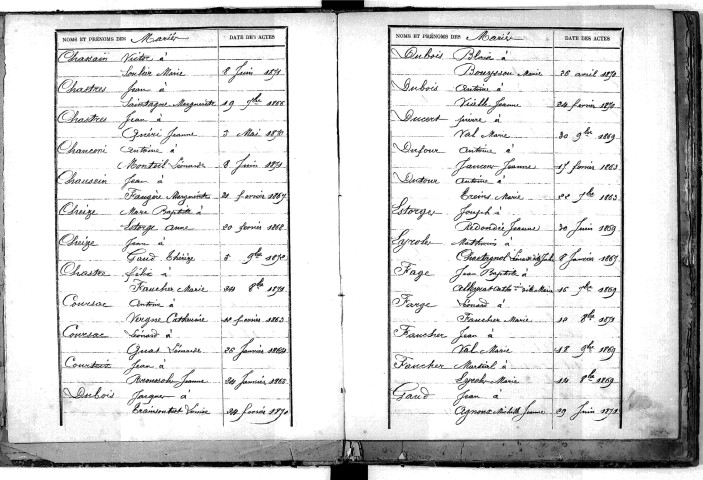 NOMS ET PRÉNOMS DES Mariés DATE DES ACTES
Chassain Victor à
Soulier Marie 8 Juin 1871
Chastres Jean à
Marguerite 19 9bre 1866
Chastres Jean à
Jeanne 3 Mai 1870
Chauconi Antoine à
Monteil Léonarde 8 Juin 1871
Chaussein Jean à
Faugère Marguerite 21 février 1867
Chèize Marie Baptiste à
Estorge Anne 20 février 1868
Chèize Jean à
Gaud Thérèze 5 9bre 1870
Chastre félix à
Faucher Marie 24 8bre 1871
Coursac Antoine à
Vergne Catherine 11 février 1863
Coursac Léonard à
Léonarde 25 Janvier 1864
Jean à
Jeanne 24 Janvier 1865
Dubois Jacques à
24 février 1870
NOMS ET PRÉNOMS DES Mariés DATE DES ACTES
Dubois Blaise à
Bouyssou Marie 28 avril 1870
Dubois Antoine à
Vielle Jeanne 24 février 1870
Ducert pierre à
Val Marie 30 9bre 1869
Dufour Antoine à
Jeanne 17 février 1863
Dutour Antoine à
Marie 22 7bre 1863
Estorge Joseph à
Redondie Jeanne 30 Juin 1859
Eyrole Mathurin à
Chastagnol 8 Janvier 1867
Fage Jean Baptiste à
dite Marie 16 7bre 1869
Farge Léonard à
Faucher Marie 10 8bre 1871
Faucher Jean à
Val Marie 18 9bre 1869
Faucher Martial à
Eyrole Marie 14 8bre 1869
Gaud Jean à
Agnoux Michelle Jeanne 29 Juin 1871